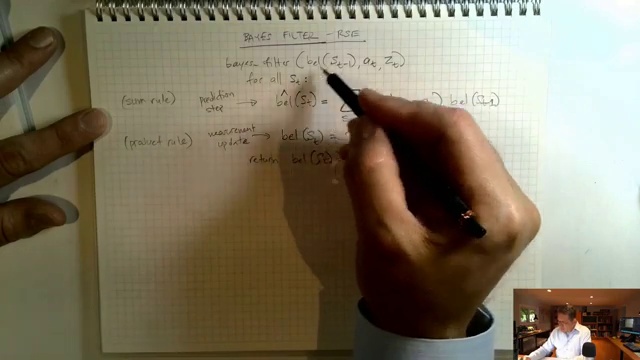 BAYES FILTER - RSE
bayes filter (bel(St-1), at, Zt)
for all St:
(sum rule) prediction step → bel̂(St) = Σ bel(St-1)
(product rule) measurement update → bel(St) =
return bel(St)